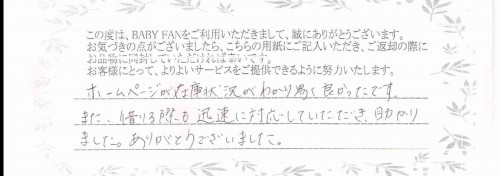 この度は、BABY FANをご利用いただきまして、誠にありがとうございます。
お気づきの点がございましたら、こちらの用紙にご記入いただき、ご返却の際に
お品物に同封していただければ幸いです。
お客様にとって、よりよいサービスをご提供できるように努力いたします。
ホームページが在庫状況がわかり易く良かったです。
また、借りる際も迅速に対応していただき、助かり
ました。ありがとうございました。